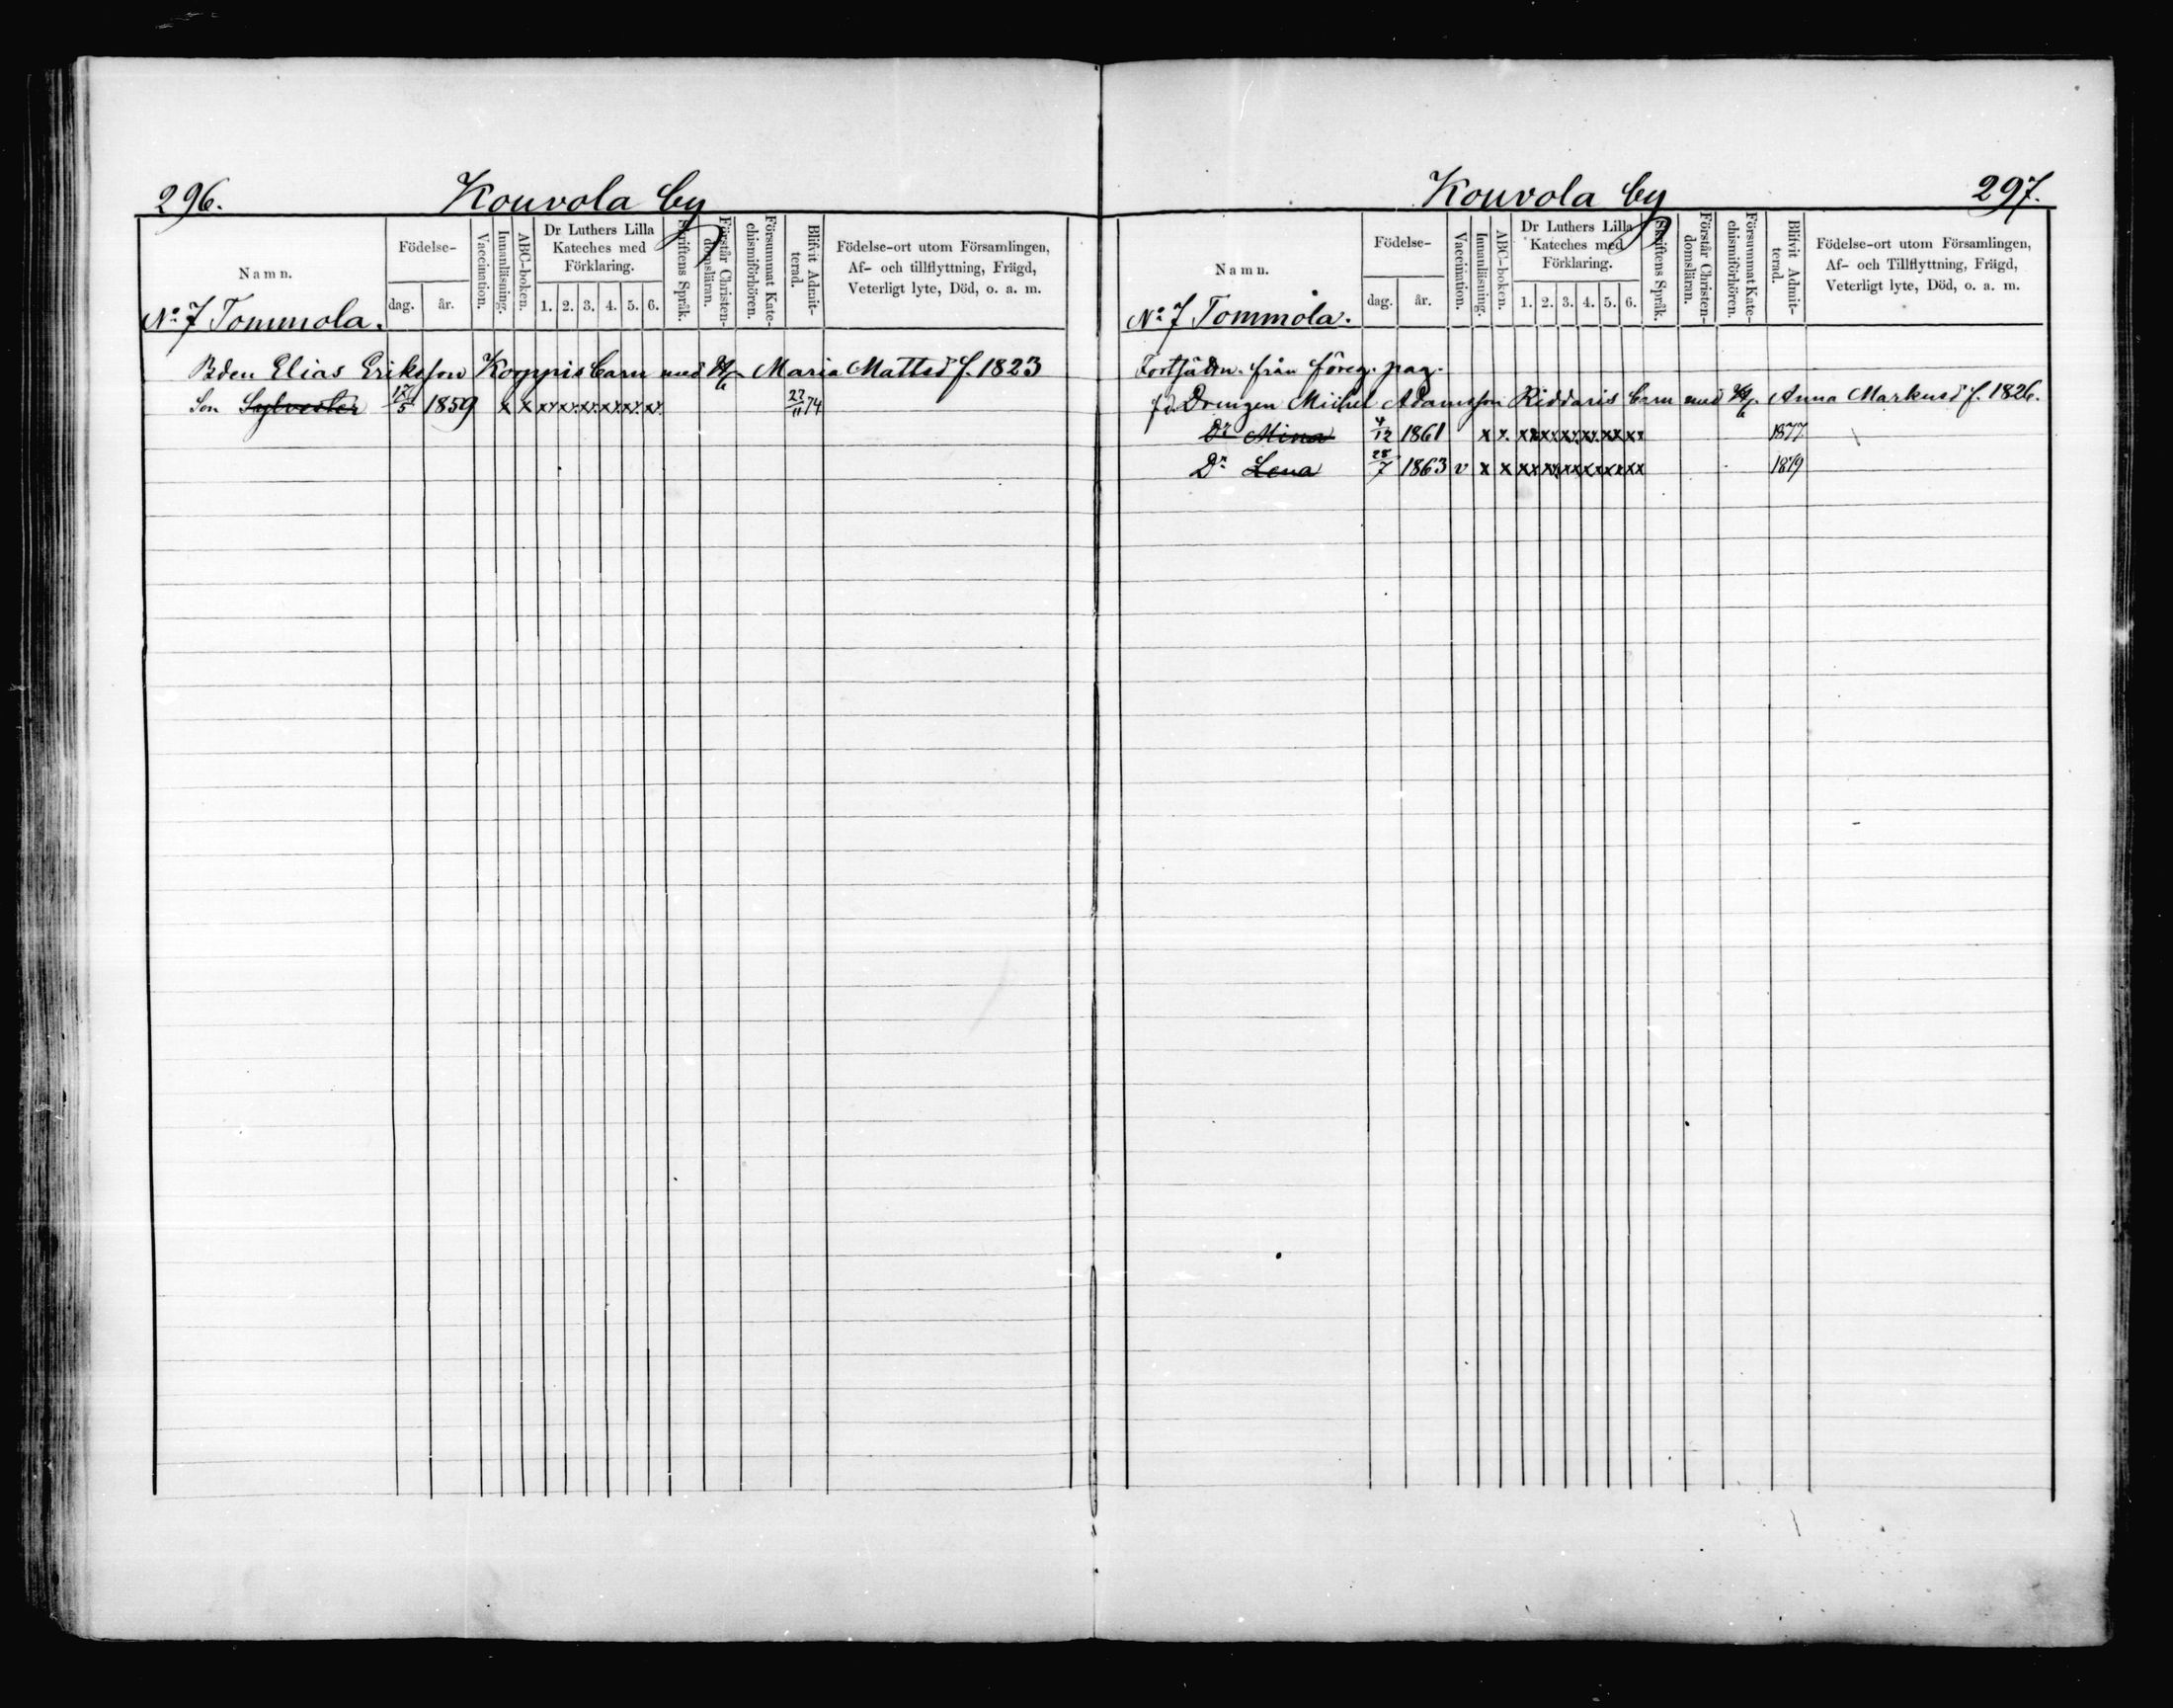 296. Kouvola by
Namn.
Födelse-
dag. år.
Vaccination.
Innanläsning.
ABC-boken.
Dr Luthers Lilla Kateches med Förklaring.
1. 2. 3. 4. 5. 6.
Skriftens Språk.
Förstår Christen-domsläran.
Försummat Kate-chismiförhören.
Blifvit Admit-terad.
Födelse-ort utom Församlingen,
Af- och tillflyttning, Frägd,
Veterligt lyte, Död, o. a. m.
No 7 Tommola.
Bden Elias Eriksson Koppis barn med Maria Mattsd f. 1823
Son Sylvester 17/5 1859 x x xx xx xx xx xx xx 22/11 74
Kouvola by 297.
Namn.
Födelse-
dag. år.
Vaccination.
Innanläsning.
ABC-boken.
Dr Luthers Lilla Kateches med Förklaring.
1. 2. 3. 4. 5. 6.
Skriftens Språk.
Förstår Christen-domsläran.
Försummat Kate-chismiförhören.
Blifvit Admit-terad.
Födelse-ort utom Församlingen,
Af- och Tillflyttning, Frägd,
Veterligt lyte, Död, o. a. m.
No 7 Tommola.
Fortsättn. från föreg. pag.
f.d. Drengen Michel Adamsson Riddaris barn med Anna Markusd f. 1826.
Dr Mina 4/12 1861 x x xx xx xx xx xx xx 1877
Dr Lena 28/7 1863 v x x xx xx xx xx xx xx 1879